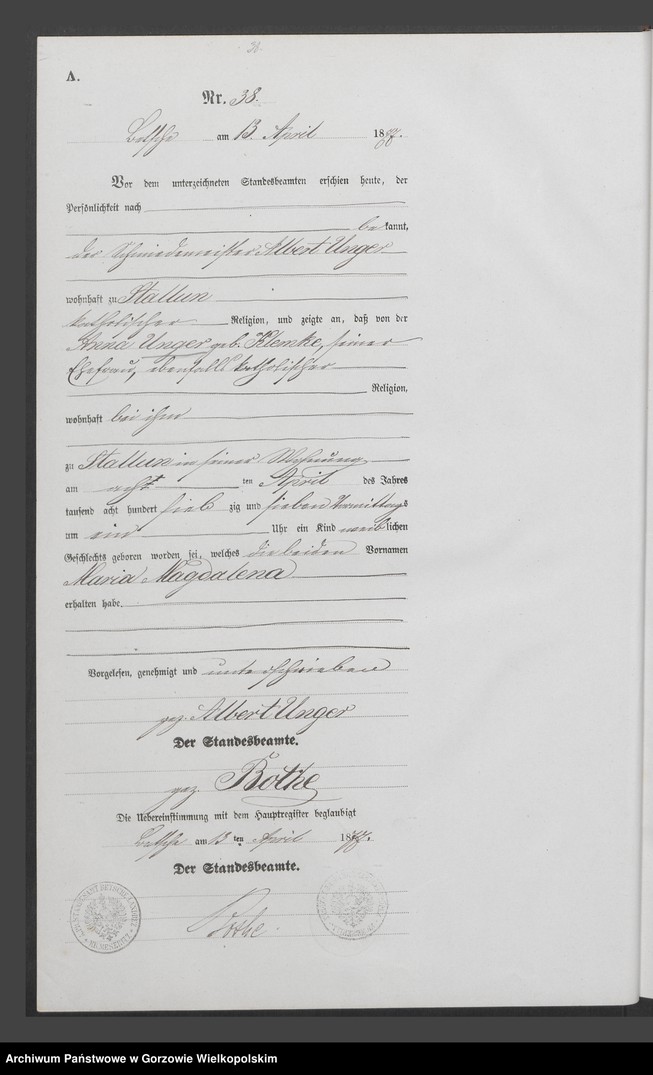 A.
Nr. 38.
Betsche am 13 April 1887.
Vor dem unterzeichneten Standesbeamten erschien heute, der
Persönlichkeit nach
bekannt,
der Schmiedemeister Albert Unger
wohnhaft zu Stallun
katholischer Religion, und zeigte an, daß von der
Anna Unger geb. Klemke, seiner
Ehefrau, ebenfalls katholischer
Religion,
wohnhaft bei ihm
zu Stallun in seiner Wohnung
am acht ten April des Jahres
tausend acht hundert sieb zig und sieben Vormittags
um ein Uhr ein Kind weiblichen
Geschlechts geboren worden sei, welches die beiden Vornamen
Maria Magdalena
erhalten habe.
Vorgelesen, genehmigt und unterschrieben
gez. Albert Unger
Der Standesbeamte.
gez. Bothe
Die Uebereinstimmung mit dem Hauptregister beglaubigt
Betsche am 13 ten April 1877.
Der Standesbeamte.
Bothe
Archiwum Państwowe w Gorzowie Wielkopolskim